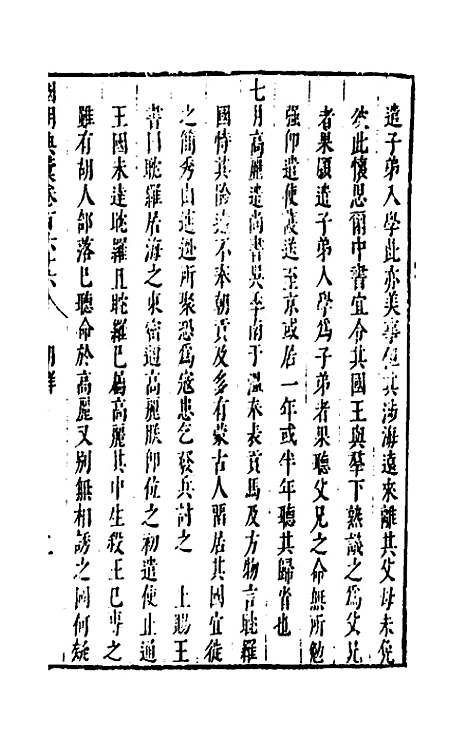 遣子弟入學此亦美事但其涉海遠來離其父母未免
彼此懷思爾中書宜令其國王與羣下熟議之爲父兄
者果願遣子弟入學爲子弟者果聽父兄之命無所勉
強卽遣使護送至京或居一年或半年聽其歸省也
七月高麗遣尚書吳季南于溫奉表貢馬及方物言耽羅
國恃其險遠不奉朝貢及多有蒙古人留居其國宜徙
之蘭秀山逋逃所聚恐爲寇患乞發兵討之　上賜王
書曰耽羅居海之東密邇高麗朕卽位之初遣使止通
王國未達耽羅且耽羅已屬高麗其中生殺王已專之
雖有胡人部落已聽命於高麗又別無相誘之國何疑
國朝典彙卷一百六十六　朝鮮